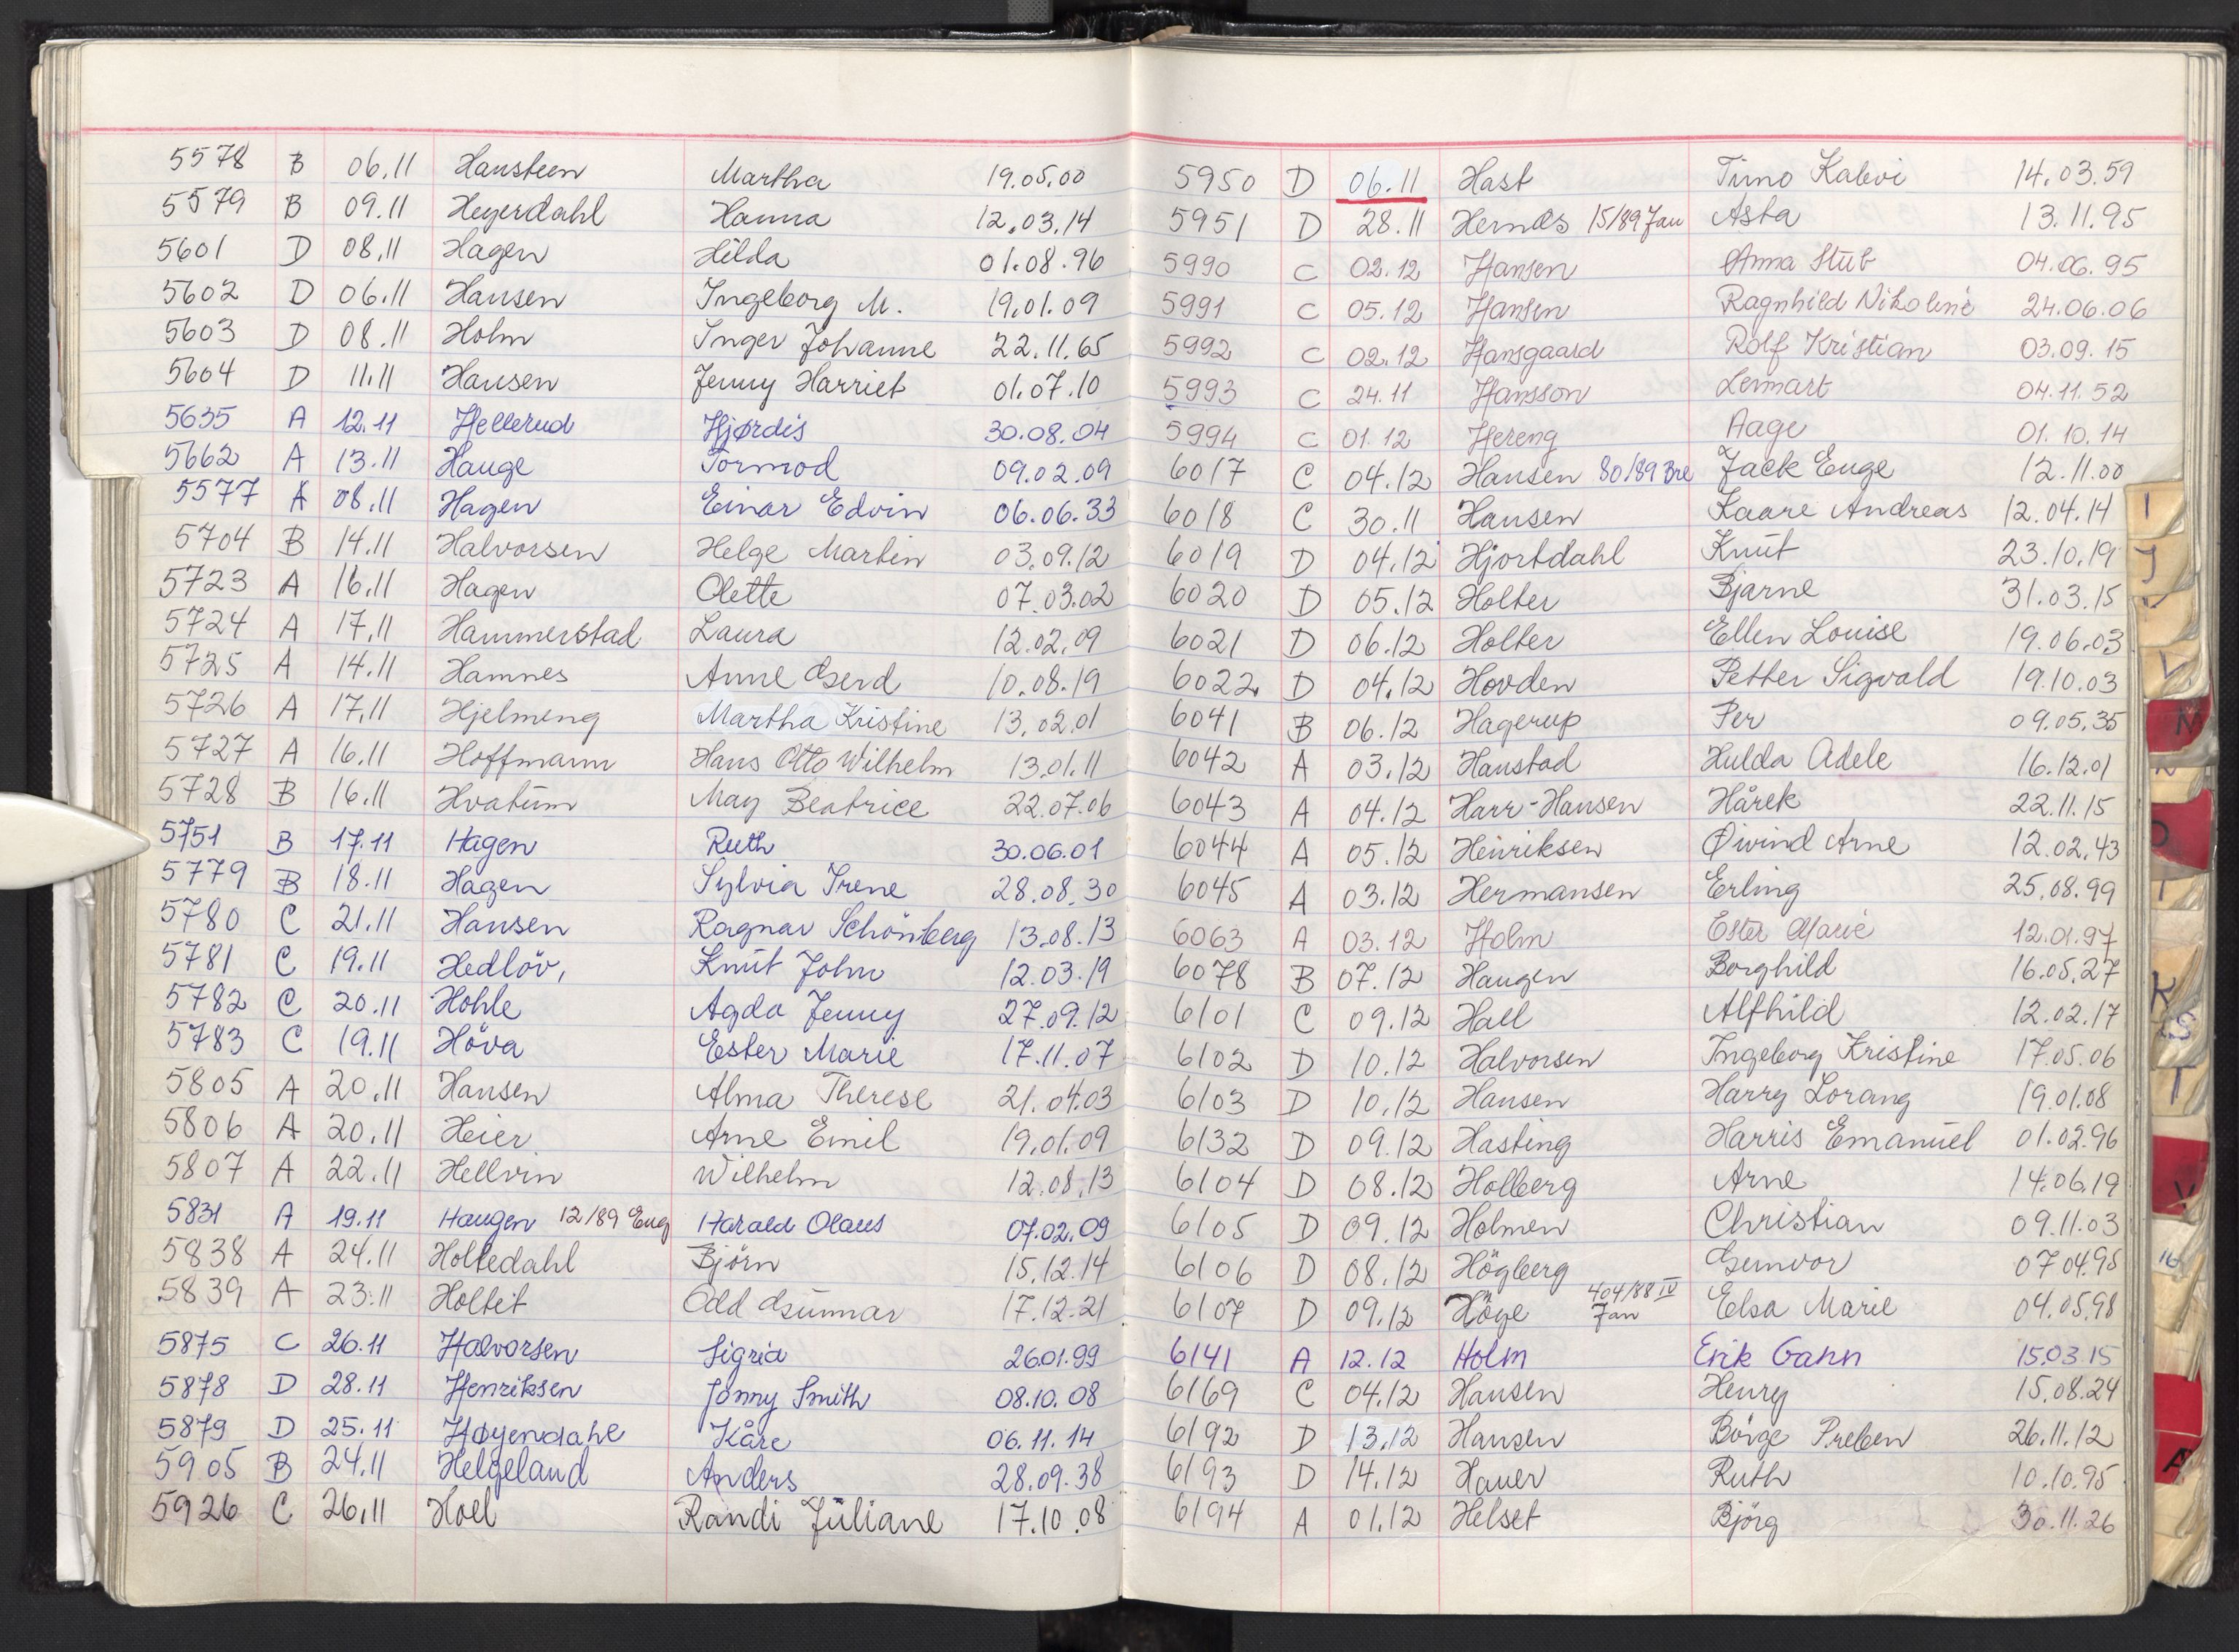 5578 B 06.11 Hansteen Martha 19.05.00
5579 B 09.11 Heyerdahl Hanna 12.03.14
5601 D 08.11 Hagen Hilda 01.08.96
5602 D 06.11 Hansen Ingeborg M. 19.01.09
5603 D 08.11 Holm Inger Johanne 22.11.65
5604 D 11.11 Hansen Jenny Harriet 01.07.10
5635 A 12.11 Hellerud Hjørdis 30.08.04
5662 A 13.11 Hauge Tormod 09.02.09
5577 A 08.11 Hagen Einar Edvin 06.06.33
5704 B 14.11 Halvorsen Helge Martin 03.09.12
5723 A 16.11 Hagen Olette 07.03.02
5724 A 17.11 Hammerstad Laura 12.02.09
5725 A 14.11 Hamnes Anne Gerd 10.08.19
5726 A 17.11 Hjelmeng Martha Kristine 13.02.01
5727 A 16.11 Hoffmann Hans Otto Wilhelm 13.01.11
5728 B 16.11 Hvatum May Beatrice 22.07.06
5751 B 17.11 Hagen Ruth 30.06.01
5779 B 18.11 Hagen Sylvia Irene 28.08.30
5780 C 21.11 Hansen Ragnar Schönberg 13.08.13
5781 C 19.11 Hedlöv, Knut John 12.03.19
5782 C 20.11 Hohle Agda Jenny 27.09.12
5783 C 19.11 Höva Ester Marie 17.11.07
5805 A 20.11 Hansen Alma Therese 21.04.03
5806 A 20.11 Heier Arne Emil 19.01.09
5807 A 22.11 Hellvin Wilhelm 12.08.13
5831 A 19.11 Haugen 12/89 Eng Harald Olaus 07.02.09
5838 A 24.11 Holtedahl Björn 15.12.14
5839 A 23.11 Holtet Odd Gunnar 17.12.21
5875 C 26.11 Halvorsen Sigrid 26.01.99
5878 D 28.11 Henriksen Jonny Smith 08.10.08
5879 D 25.11 Høyendahl Kåre 06.11.14
5905 B 24.11 Helgeland Anders 28.09.38
5926 C 26.11 Hoel Randi Juliane 17.10.08
5950 D 06.11 Hast Timo Kalevi 14.03.59
5951 D 28.11 Hernæs 15/89 Jan Asta 13.11.95
5990 C 02.12 Hansen Anna Stub 04.06.95
5991 C 05.12 Hansen Ragnhild Nikoline 24.06.06
5992 C 02.12 Hansgaard Rolf Kristian 03.09.15
5993 C 24.11 Hansson Lennart 04.11.52
5994 C 01.12 Hereng Aage 01.10.14
6017 C 04.12 Hansen 80/89 Bre Jack Enge 12.11.00
6018 C 30.11 Hansen Kaare Andreas 12.04.14
6019 D 04.12 Hjortdahl Knut 23.10.19
6020 D 05.12 Holter Bjarne 31.03.15
6021 D 06.12 Holter Ellen Louise 19.06.03
6022 D 04.12 Hovden Petter Sigvald 19.10.03
6041 B 06.12 Hagerup Per 09.05.35
6042 A 03.12 Hanstad Hulda Adele 16.12.01
6043 A 04.12 Harr-Hansen Hårek 22.11.15
6044 A 05.12 Henriksen Øivind Arne 12.02.43
6045 A 03.12 Hermansen Erling 25.08.99
6063 A 03.12 Holm Ester Marie 12.01.97
6078 B 07.12 Haugen Borghild 16.05.27
6101 C 09.12 Hall Alfhild 12.02.17
6102 D 10.12 Halvorsen Ingeborg Kristine 17.05.06
6103 D 10.12 Hansen Harry Lorang 19.01.08
6132 D 09.12 Hasting Harris Emanuel 01.02.96
6104 D 08.12 Holberg Arne 14.06.19
6105 D 09.12 Holmen Christian 09.11.03
6106 D 08.12 Högberg Gunvor 07.04.95
6107 D 09.12 Höye 404/88 IV Jan Elsa Marie 04.05.98
6141 A 12.12 Holm Erik Gahn 15.03.15
6169 C 04.12 Hansen Henry 15.08.24
6192 D 13.12 Hansen Börge Preben 26.11.12
6193 D 14.12 Hauer Ruth 10.10.95
6194 A 01.12 Helset Björg 30.11.26
I
J
V
N
K
S
T
V
16